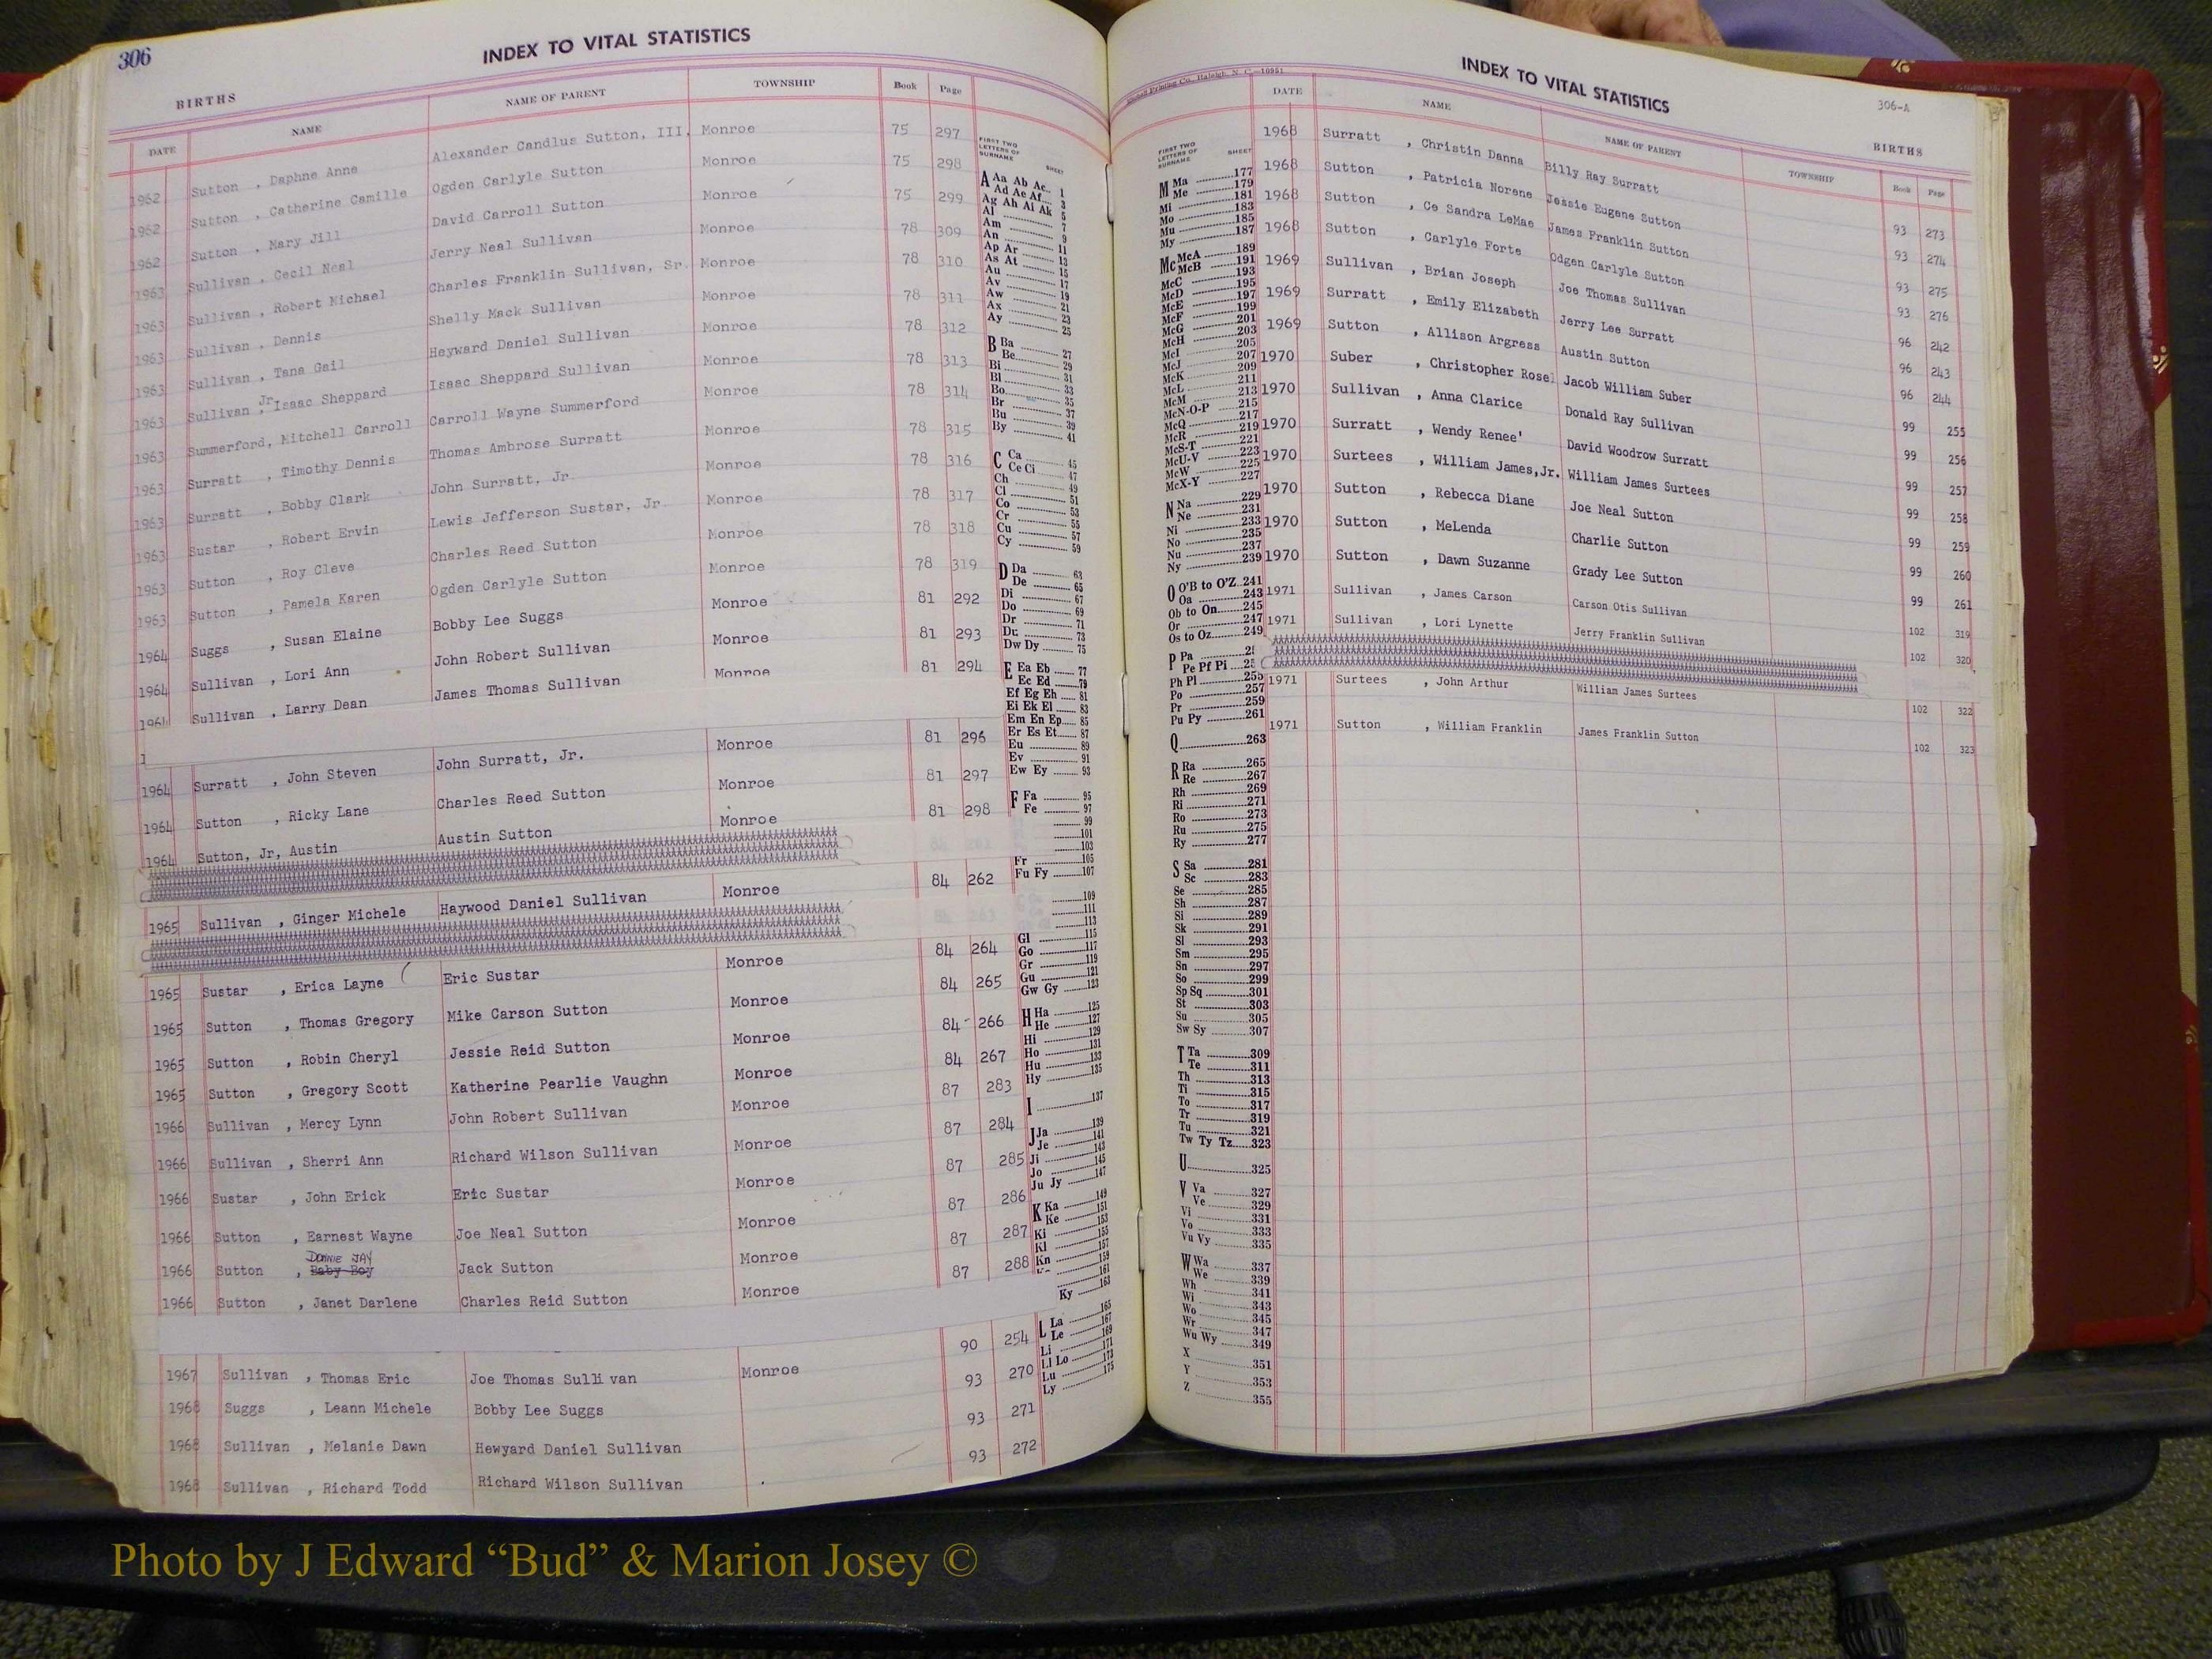 306
INDEX TO VITAL STATISTICS
BIRTHS
DATE NAME NAME OF PARENT TOWNSHIP Book Page
1962 Sutton , Daphne Anne Alexander Candlus Sutton, III, Monroe 75 297
1962 Sutton , Catherine Camille Ogden Carlyle Sutton Monroe 75 298
1962 Sutton , Mary Jill David Carroll Sutton Monroe 75 299
1963 Sullivan , Cecil Neal Jerry Neal Sullivan Monroe 78 309
1963 Sullivan , Robert Michael Charles Franklin Sullivan, Sr. Monroe 78 310
1963 Sullivan , Dennis Shelly Mack Sullivan Monroe 78 311
1963 Sullivan , Tana Gail Heyward Daniel Sullivan Monroe 78 312
1963 Sullivan , Jr Isaac Sheppard Isaac Sheppard Sullivan Monroe 78 313
1963 Summerford, Mitchell Carroll Carroll Wayne Summerford Monroe 78 314
1963 Surratt , Timothy Dennis Thomas Ambrose Surratt Monroe 78 315
1963 Surratt , Bobby Clark John Surratt, Jr. Monroe 78 316
1963 Sustar , Robert Ervin Lewis Jefferson Sustar, Jr. Monroe 78 317
1963 Sutton , Roy Cleve Charles Reed Sutton Monroe 78 318
1963 Sutton , Pamela Karen Ogden Carlyle Sutton Monroe 78 319
1964 Suggs , Susan Elaine Bobby Lee Suggs Monroe 81 292
1964 Sullivan , Lori Ann John Robert Sullivan Monroe 81 293
1964 Sullivan , Larry Dean James Thomas Sullivan Monroe 81 294
1964 Surratt , John Steven John Surratt, Jr. Monroe 81 296
1964 Sutton , Ricky Lane Charles Reed Sutton Monroe 81 297
1964 Sutton, Jr, Austin Austin Sutton Monroe 81 298
1965 Sullivan , Ginger Michele Haywood Daniel Sullivan Monroe 84 262
1965 Sustar , Erica Layne Eric Sustar Monroe 84 264
1965 Sutton , Thomas Gregory Mike Carson Sutton Monroe 84 265
1965 Sutton , Robin Cheryl Jessie Reid Sutton Monroe 84 266
1965 Sutton , Gregory Scott Katherine Pearlie Vaughn Monroe 84 267
1966 Sullivan , Mercy Lynn John Robert Sullivan Monroe 87 283
1966 Sullivan , Sherri Ann Richard Wilson Sullivan Monroe 87 284
1966 Sustar , John Erick Eric Sustar Monroe 87 285
1966 Sutton , Earnest Wayne Joe Neal Sutton Monroe 87 286
JAY
1966 Sutton , Baby Boy Jack Sutton Monroe 87 287
1966 Sutton , Janet Darlene Charles Reid Sutton Monroe 87 288
1967 Sullivan , Thomas Eric Joe Thomas Sullivan Monroe 90 254
1968 Suggs , Leann Michele Bobby Lee Suggs 93 270
1968 Sullivan , Melanie Dawn Hewyard Daniel Sullivan 93 271
1968 Sullivan , Richard Todd Richard Wilson Sullivan 93 272
FIRST TWO LETTERS OF SURNAME SHEET
A Aa Ab Ac 1
Ad Ae Af 3
Ag Ah Ai Ak 5
Al 7
Am 9
An 11
Ap Ar 13
As At 15
Au 17
Av 19
Aw 21
Ax 23
Ay 25
B Ba 27
Be 29
Bi 31
Bl 33
Bo 35
Br 37
Bu 39
By 41
C Ca 45
Ce Ci 47
Ch 49
Cl 51
Co 53
Cr 55
Cu 57
Cy 59
D Da 63
De 65
Di 67
Do 69
Dr 71
Du 73
Dw Dy 75
E Ea Eb 77
Ec Ed 79
Ef Eg Eh 81
Ei Ek El 83
Em En Ep 85
Er Es Et 87
Eu 89
Ev 91
Ew Ey 93
F Fa 95
Fe 97
99
101
103
Fr 105
Fu Fy 107
109
111
113
Gl 115
Go 117
Gr 119
Gu 121
Gw Gy 123
H Ha 125
He 127
Hi 129
Ho 131
Hu 133
Hy 135
I 137
J Ja 139
Je 141
Ji 143
Jo 145
Ju Jy 147
K Ka 149
Ke 151
Ki 153
Kl 155
Kn 157
159
161
Ky 163
L La 165
Le 167
Li 169
Ll Lo 171
Lu 173
Ly 175
Printing Co., Raleigh, N. C.—10951
INDEX TO VITAL STATISTICS
306-A
BIRTHS
DATE NAME NAME OF PARENT TOWNSHIP Book Page
1968 Surratt , Christin Danna Billy Ray Surratt 93 273
1968 Sutton , Patricia Norene Jessie Eugene Sutton 93 274
1968 Sutton , Ce Sandra LeMae James Franklin Sutton 93 275
1968 Sutton , Carlyle Forte Odgen Carlyle Sutton 93 276
1969 Sullivan , Brian Joseph Joe Thomas Sullivan 96 242
1969 Surratt , Emily Elizabeth Jerry Lee Surratt 96 243
1969 Sutton , Allison Argress Austin Sutton 96 244
1970 Suber , Christopher Rosel Jacob William Suber 99 255
1970 Sullivan , Anna Clarice Donald Ray Sullivan 99 256
1970 Surratt , Wendy Renee' David Woodrow Surratt 99 257
1970 Surtees , William James,Jr. William James Surtees 99 258
1970 Sutton , Rebecca Diane Joe Neal Sutton 99 259
1970 Sutton , MeLenda Charlie Sutton 99 260
1970 Sutton , Dawn Suzanne Grady Lee Sutton 99 261
1971 Sullivan , James Carson Carson Otis Sullivan 102 319
1971 Sullivan , Lori Lynette Jerry Franklin Sullivan 102 320
1971 Surtees , John Arthur William James Surtees 102 322
1971 Sutton , William Franklin James Franklin Sutton 102 323
FIRST TWO LETTERS OF SURNAME SHEET
M Ma 177
Me 179
Mi 181
Mo 183
Mu 185
My 187
Mc McA 189
McB 191
McC 193
McD 195
McE 197
McF 199
McG 201
McH 203
McI 205
McJ 207
McK 209
McL 211
McM 213
McN-O-P 215
McQ 217
McR 219
McS-T 221
McU-V 223
McW 225
McX-Y 227
N Na 229
Ne 231
Ni 233
No 235
Nu 237
Ny 239
O O'B to O'Z 241
Oa 243
Ob to On 245
Or 247
Os to Oz 249
P Pa
Pe Pf Pi
Ph Pl 255
Po 257
Pr 259
Pu Py 261
Q 263
R Ra 265
Re 267
Rh 269
Ri 271
Ro 273
Ru 275
Ry 277
S Sa 281
Sc 283
Se 285
Sh 287
Si 289
Sk 291
Sl 293
Sm 295
Sn 297
So 299
Sp Sq 301
St 303
Su 305
Sw Sy 307
T Ta 309
Te 311
Th 313
Ti 315
To 317
Tr 319
Tu 321
Tw Ty Tz 323
U 325
V Va 327
Ve 329
Vi 331
Vo 333
Vu Vy 335
W Wa 337
We 339
Wh 341
Wi 343
Wo 345
Wr 347
Wu Wy 349
X 351
Y 353
Z 355
Photo by J Edward “Bud” & Marion Josey ©